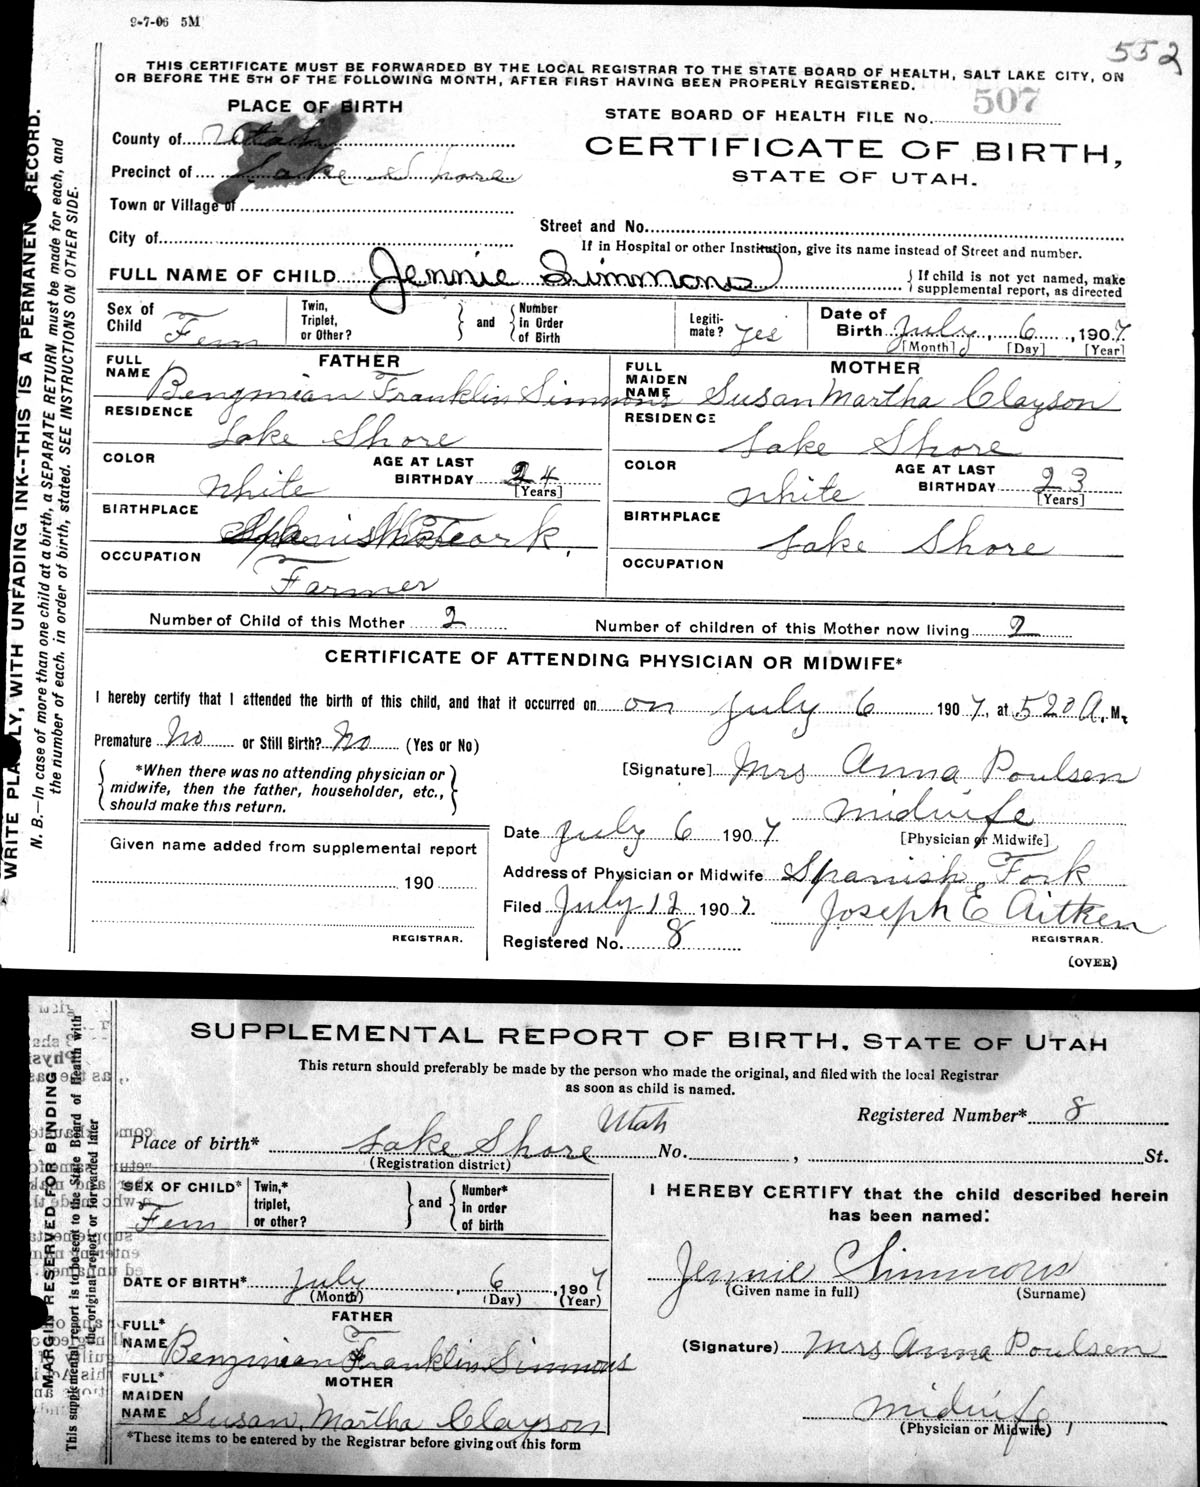 9-7-06 5M
552
THIS CERTIFICATE MUST BE FORWARDED BY THE LOCAL REGISTRAR TO THE STATE BOARD OF HEALTH, SALT LAKE CITY, ON
OR BEFORE THE 5TH OF THE FOLLOWING MONTH, AFTER FIRST HAVING BEEN PROPERLY REGISTERED.
PLACE OF BIRTH
507
STATE BOARD OF HEALTH FILE No.
County of Utah
CERTIFICATE OF BIRTH,
Precinct of Lake Shore
STATE OF UTAH.
Town or Village of
City of
Street and No.
If in Hospital or other Institution, give its name instead of Street and number.
FULL NAME OF CHILD Jennie Simmons
{If child is not yet named, make supplemental report, as directed
Sex of Child Fem
Twin, Triplet, or Other? } and { Number in Order of Birth
Legiti- mate? yes
Date of Birth July, 6, 1907
[Month] [Day] [Year]
FATHER
FULL NAME Bengmian Franklin Simmons
RESIDENCE Lake Shore
COLOR White
AGE AT LAST BIRTHDAY 24
[Years]
BIRTHPLACE Spanish Fork.
OCCUPATION Farmer
MOTHER
FULL MAIDEN NAME Susan Martha Clayson
RESIDENCE Lake Shore
COLOR White
AGE AT LAST BIRTHDAY 23
[Years]
BIRTHPLACE Lake Shore
OCCUPATION
Number of Child of this Mother 2
Number of children of this Mother now living 2
CERTIFICATE OF ATTENDING PHYSICIAN OR MIDWIFE*
I hereby certify that I attended the birth of this child, and that it occurred on on July 6 1907, at 520 A. M.
Premature No or Still Birth? No (Yes or No)
{ *When there was no attending physician or midwife, then the father, householder, etc., should make this return. }
[Signature] Mrs Anna Poulsen
midwife
[Physician or Midwife]
Date July 6 1907
Given name added from supplemental report
190
REGISTRAR.
Address of Physician or Midwife Spanish Fork
Filed July 12 1907
Joseph E Aitken
REGISTRAR.
Registered No. 8
(OVER)
WRITE PLAINLY, WITH UNFADING INK--THIS IS A PERMANENT RECORD.
N. B.--In case of more than one child at a birth, a SEPARATE RETURN must be made for each, and
the number of each, in order of birth, stated. SEE INSTRUCTIONS ON OTHER SIDE.
SUPPLEMENTAL REPORT OF BIRTH, STATE OF UTAH
This return should preferably be made by the person who made the original, and filed with the local Registrar
as soon as child is named.
Registered Number* 8
Place of birth* Lake Shore Utah No. , St.
(Registration district)
SEX OF CHILD* Fem
Twin,* triplet, or other? } and { Number* in order of birth
DATE OF BIRTH* July, 6, 1907
(Month) (Day) (Year)
FATHER
FULL* NAME Bengmian Franklin Simmons
MOTHER
FULL* MAIDEN NAME Susan, Martha Clayson
*These items to be entered by the Registrar before giving out this form
I HEREBY CERTIFY that the child described herein
has been named:
Jennie Simmons
(Given name in full) (Surname)
(Signature) Mrs Anna Poulsen
midwife
(Physician or Midwife)
MARGIN RESERVED FOR BINDING
This supplemental report is to be sent to the State Board of Health with
the original report or forwarded later